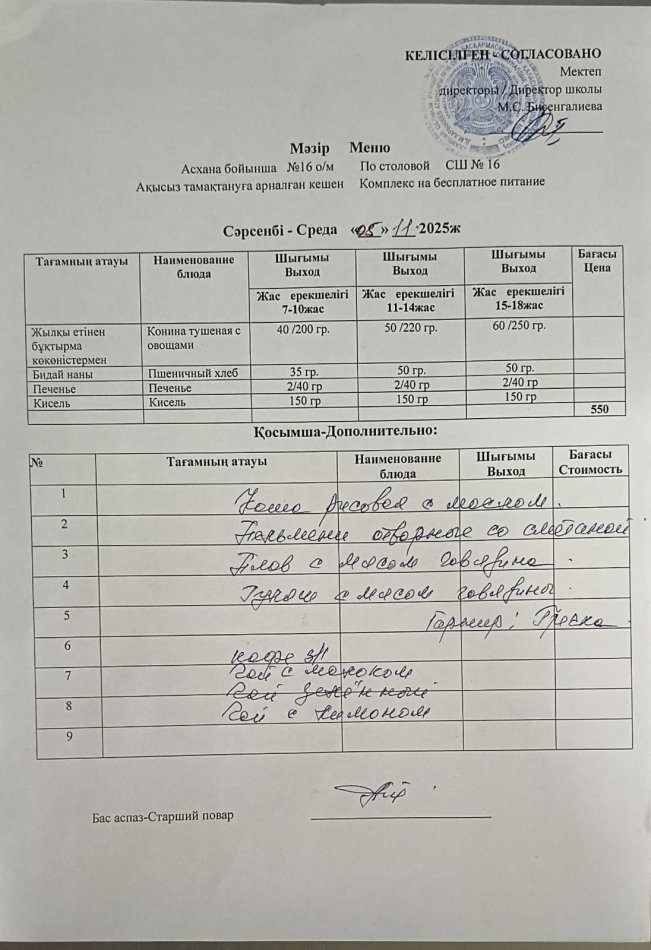 КЕЛІСІЛГЕН - СОГЛАСОВАНО
Мектеп
директоры / Директор школы
М.С. Бисенгалиева
Мәзір Меню
Асхана бойынша №16 о/м По столовой СШ № 16
Ақысыз тамақтануға арналған кешен Комплекс на бесплатное питание
Сәрсенбі - Среда «05» 11 2025ж
Тағамның атауы Наименованне блюда Шығымы Выход Шығымы Выход Шығымы Выход Бағасы Цена
Жас ерекшелігі 7-10жас Жас ерекшелігі 11-14жас Жас ерекшелігі 15-18жас
Жылқы етінен бұқтырма көкөністермен Конина тушеная с овощами 40 /200 гр. 50 /220 гр. 60 /250 гр.
Бидай наны Пшеничный хлеб 35 гр. 50 гр. 50 гр.
Печенье Печенье 2/40 гр 2/40 гр 2/40 гр
Кисель Кисель 150 гр 150 гр 150 гр
550
Қосымша-Дополнительно:
№ Тағамның атауы Наименованне блюда Шығымы Выход Бағасы Стоимость
1 Каша рисовая с маслом.
2 Пельмени отварные со сметаной
3 Плов с мясом говядина.
4 Гуляш с мясом говядины.
5 Гарнир: Гречка.
6 кофе 3/1
7 Чай с молоком
Чай зелённый
8 Чай с лимоном
9
Бас аспаз-Старший повар